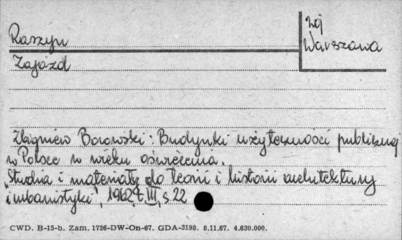 Raszyn
woj
Warszawa
Zajazd
Zbigniew Borowski: Budynki użyteczności publicznej
w Polsce w wieku oświecenia.
"Studia i materiały do teorii i historii architektury
i urbanistyki", 1962, t. III, s. 22
CWD. B-15-b. Zam. 1736-DW-On-67. GDA-3198. 8.11.67. 4.630.000.